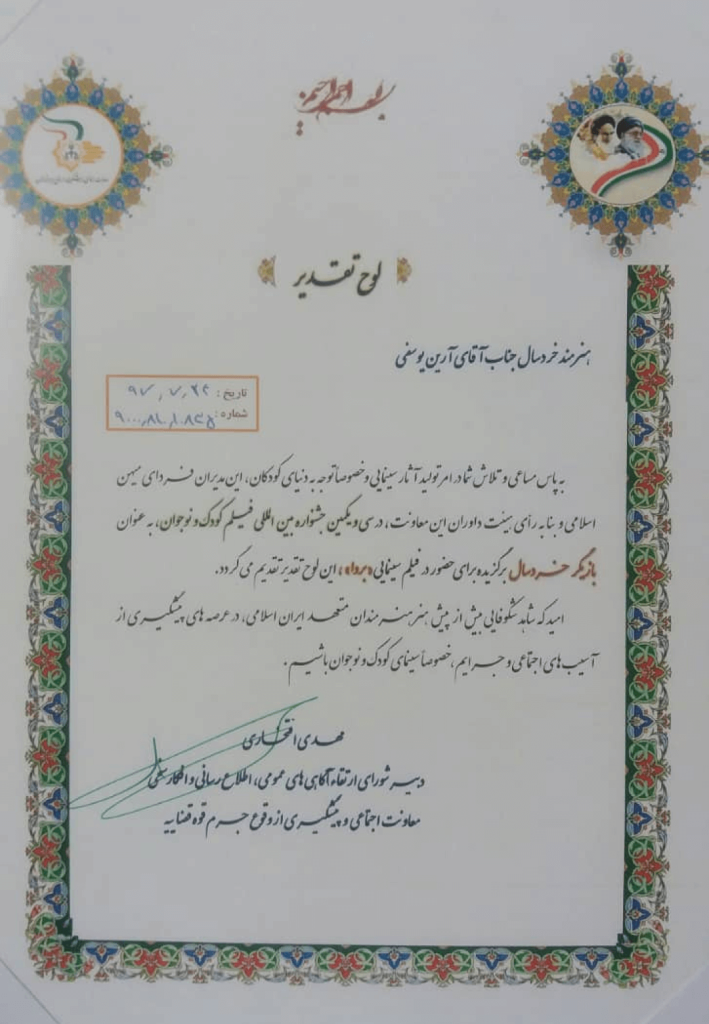 بسم الله الرحمن الرحیم
لوح تقدیر
هنرمند خردسال جناب آقای آرین یوسفی
تاریخ : ۹۷٫۷٫۲۴
شماره :
به پاس مساعی و تلاش شما در امر تولید آثار سینمایی و خصوصاً توجه به دنیای کودکان، این مدیران فردای میهن
اسلامی و بنا به رأی هیئت داوران این معاونت، در سی و یکمین جشنواره بین المللی فیلم کودک و نوجوان، به عنوان
بازیگر خردسال برگزیده برای حضور در فیلم سینمایی ، این لوح تقدیر تقدیم می گردد.
امید که شاهد شکوفایی بیش از پیش هنر هنرمندان متعهد ایران اسلامی، در عرصه های پیشگیری از
آسیب های اجتماعی و جرایم، خصوصاً سینمای کودک و نوجوان باشیم.
مهدی افتخاری
دبیر شورای ارتقاء آگاهی های عمومی، اطلاع رسانی و افکارسنجی
معاونت اجتماعی و پیشگیری از وقوع جرم قوه قضاییه